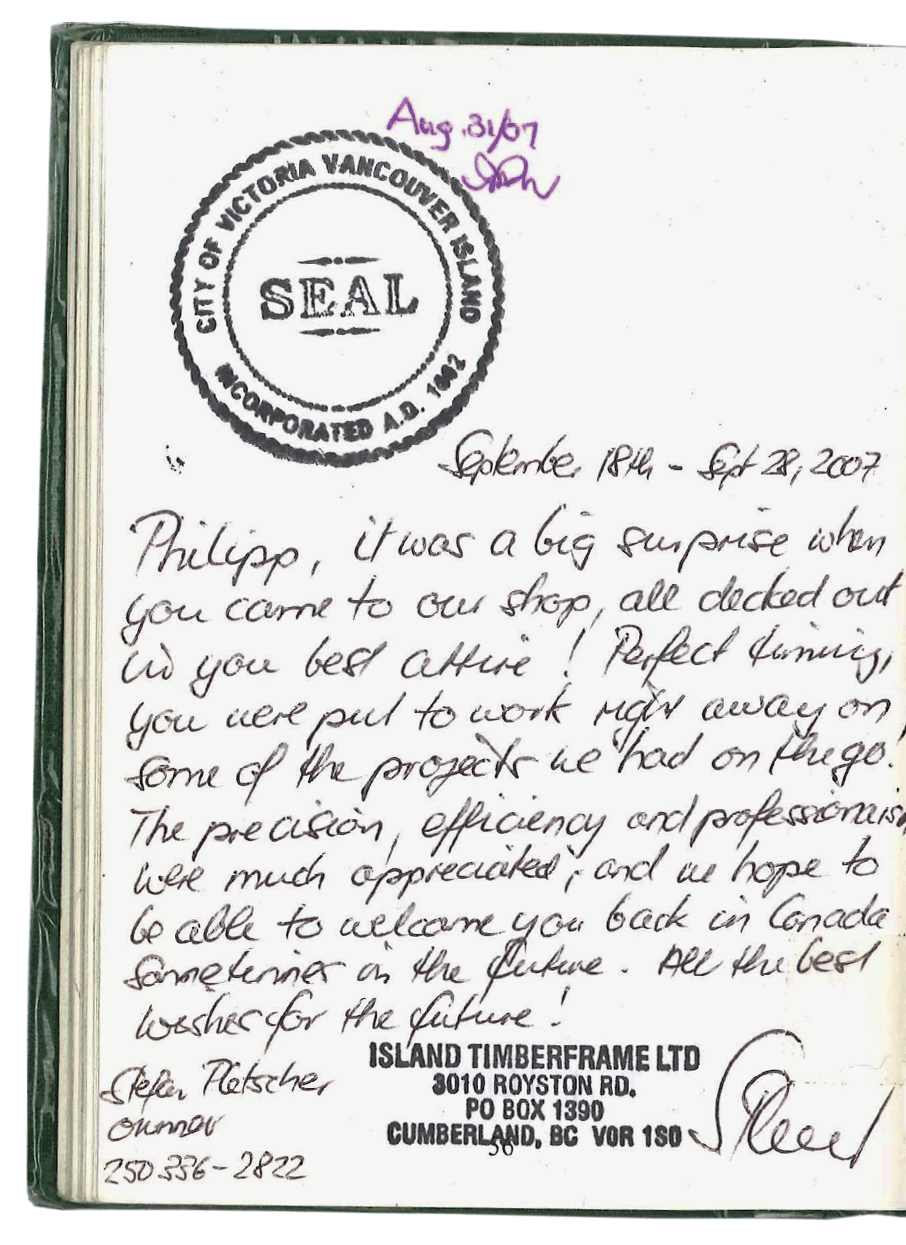 Aug. 31/07
CITY OF VICTORIA VANCOUVER ISLAND
SEAL
INCORPORATED A.D. 1862
September 18th - Sept 28, 2007
Philipp, it was a big surprise when
you came to our shop, all decked out
in you best attire! Perfect timing,
you were put to work right away on
some of the projects we had on the go!
The precision, efficiency and professionalism
were much appreciated, and we hope to
be able to welcome you back in Canada
sometimes in the future. All the best
wishes for the future!
ISLAND TIMBERFRAME LTD
3010 ROYSTON RD.
PO BOX 1390
CUMBERLAND, BC V0R 1S0
Stefan Pletscher
owner
250 336-2822
56